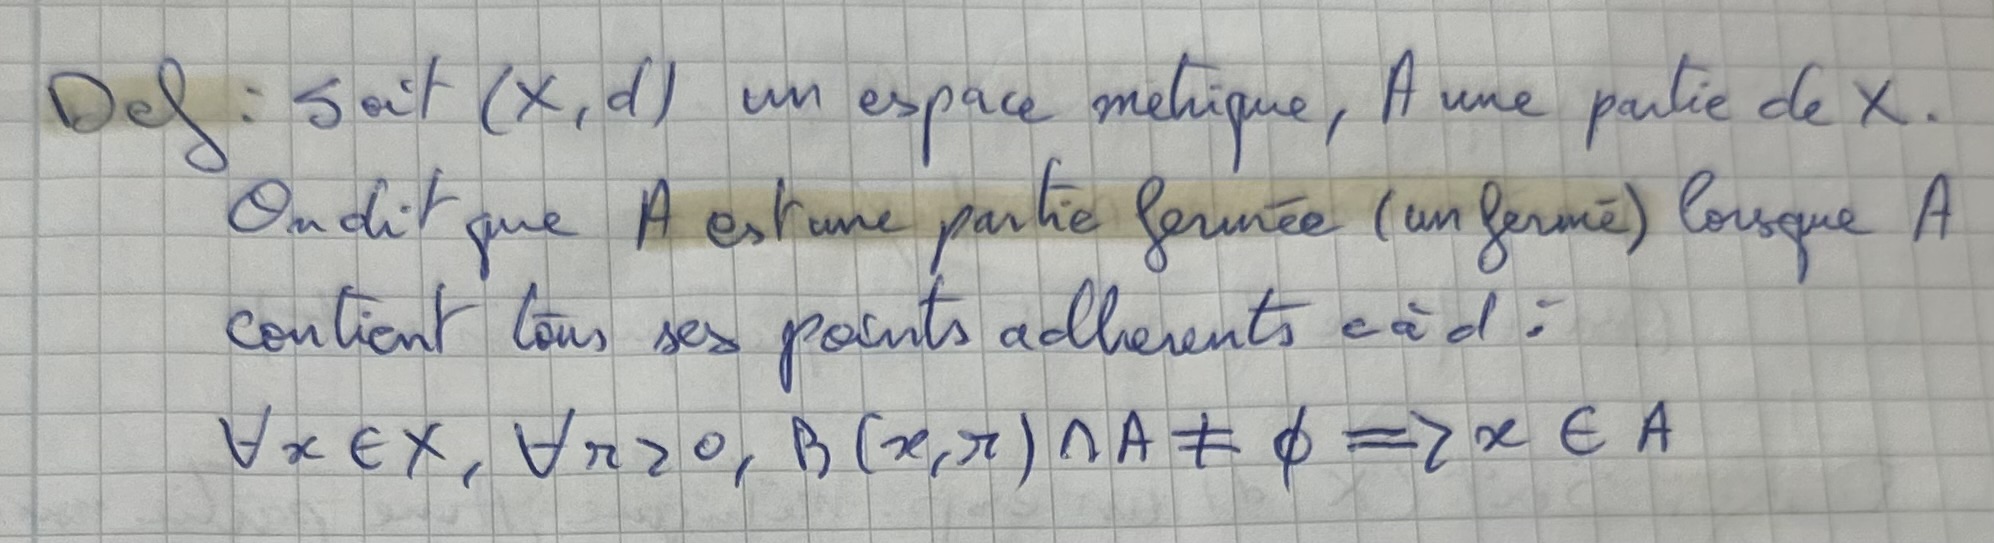 Def : Soit (X, d) un espace métrique, A une partie de X.
On dit que A est une partie fermée (un fermé) lorsque A
contient tous ses points adhérents c à d :
∀x ∈ X, ∀r > 0, B(x, r) ∩ A ≠ ∅ => x ∈ A